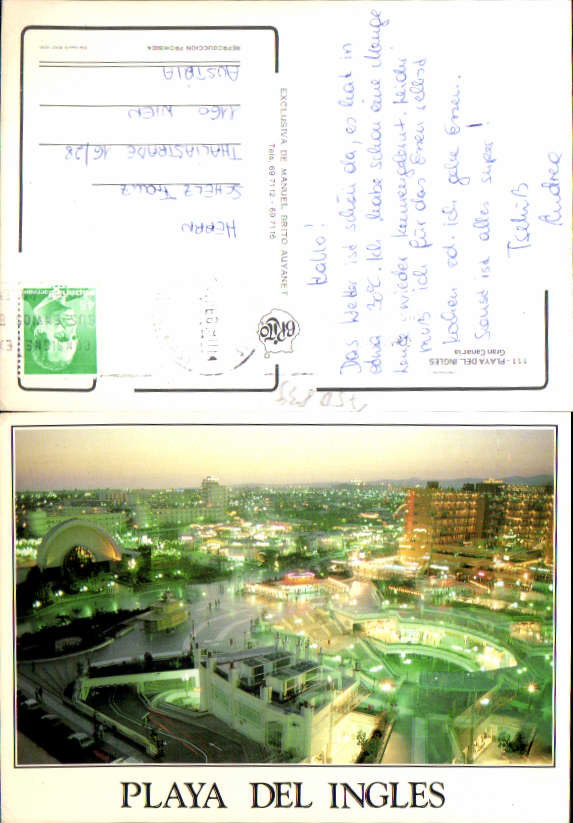 Hallo!
Das Wetter ist schön da, es hat in
etwa 30°C. Ich habe schon eine Menge
Leute wieder kennengelernt. Leider
muß ich für das Essen selbst
kochen od. ich gehe Essen.
Sonst ist alles super!
Tschüß
Andrea
HERRN
SCHELZ FRANZ
THALIASTRAßE 16/28
1160 WIEN
AUSTRIA
REPRODUCCION PROHIBIDA
EXCLUSIVA DE MANUEL BRITO AUYANET
Tels. 69 7112 - 69 7116
BRITO
111 - PLAYA DEL INGLES
Gran Canaria
PLAYA DEL INGLES